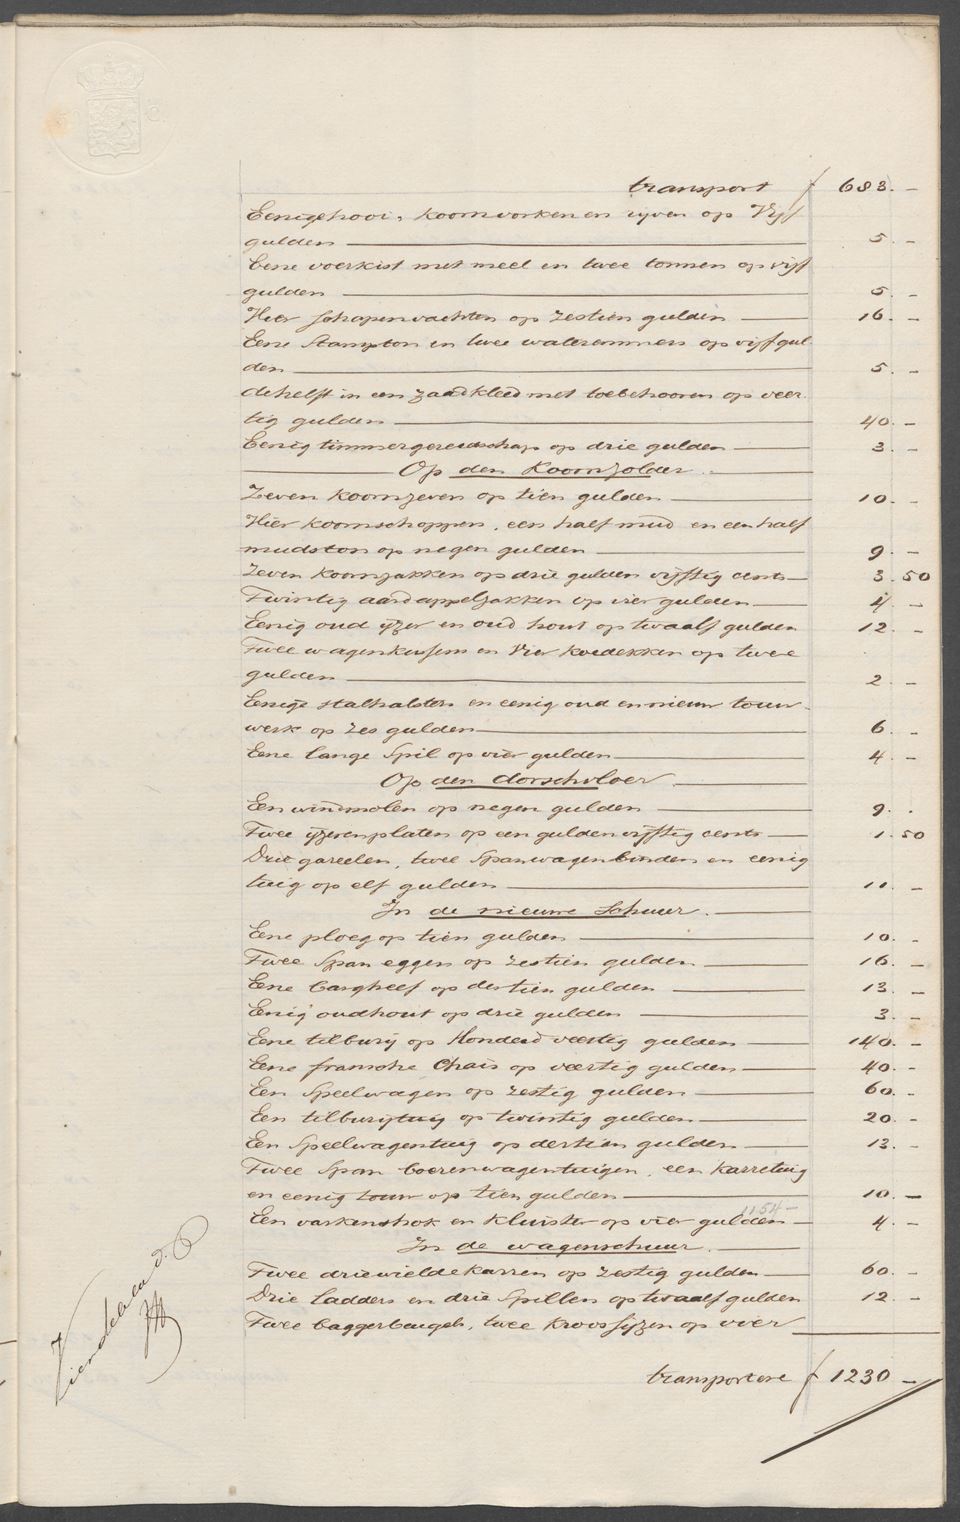 transport f 683.-
Eenige hooi, koornvorken en rijven op Vijf
gulden 5.-
Eene voerkist met meel en twee tonnen op vijf
gulden 5.-
Vier schapenvachten op zestien gulden 16.-
Eene Stampton en twee wateremmers op vijf gul
den 5.-
de helft in een zaadkleed met toebehooren op veer
tig gulden 40.-
Eenig timmergereedschap op drie gulden 3.-
Op den Koornzolder.
Zeven koornzeven op tien gulden 10.-
Vier koornschoppen, een half mud en een half
mudston op negen gulden 9.-
Zeven koornzakken op drie gulden vijftig cents 3.50
Twintig aardappelzakken op vier gulden 4.-
Eenig oud ijzer en oud hout op twaalf gulden 12.-
Twee wagenkussens en Vier koedekken op twee
gulden 2.-
Eenige stalhalsters en eenig oud en nieuw touw-
werk op zes gulden 6.-
Eene lange Spil op vier gulden 4.-
Op den dorschvloer.
Een windmolen op negen gulden 9.
Twee ijzeren platen op een gulden vijftig cents 1.50
Drie gareelen, twee Spanwagenbinders en eenig
tuig op elf gulden 11.-
In de nieuwe Schuur.
Eene ploeg op tien gulden 10.-
Twee Span eggen op zestien gulden 16.-
Eene bargheef op dertien gulden 13.-
Enig oudhout op drie gulden 3.-
Eene tilburij op Honderd veertig gulden 140.-
Eene fransche Chais op veertig gulden 40.-
Een Speelwagen op zestig gulden 60.-
Een tilburijtuig op twintig gulden 20.-
Een Speelwagentuig op dertien gulden 13.-
Twee Span boerenwagentuigen, een karretuig
en eenig touw op tien gulden 10.-
1154-
Een varkenshok en kluister op vier gulden 4.-
In de wagenschuur.
Twee driewielde karren op zestig gulden 60.-
Drie ladders en drie Spillen op twaalf gulden 12.-
Twee baggerbeugels, twee kroossijzen op vier
transportere f 1230.-
Vierdeblad.